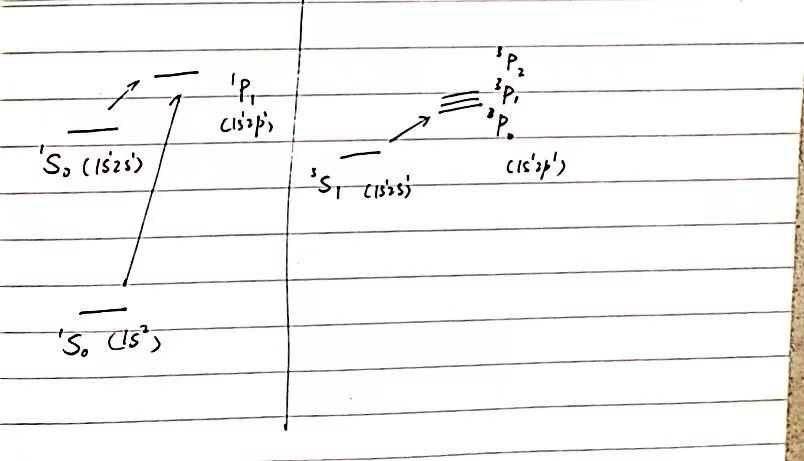 ¹P₁
(1s¹2p¹)
¹S₀ (1s¹2s¹)
¹S₀ (1s²)
³P₂
³P₁
³P₀
(1s¹2p¹)
³S₁ (1s¹2s¹)